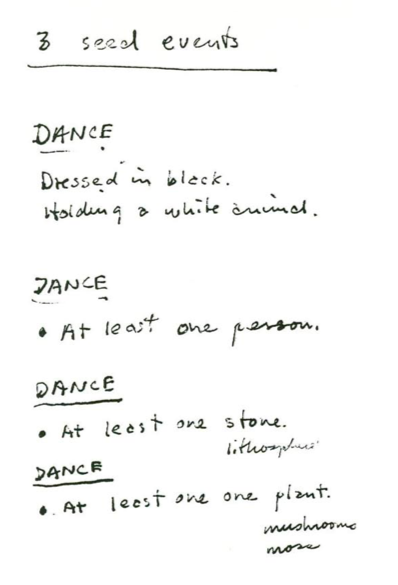 3 seed events
DANCE
Dressed in black.
Holding a white animal.
DANCE
• At least one person.
DANCE
• At least one stone.
DANCE
• At least one one plant.
mushrooms